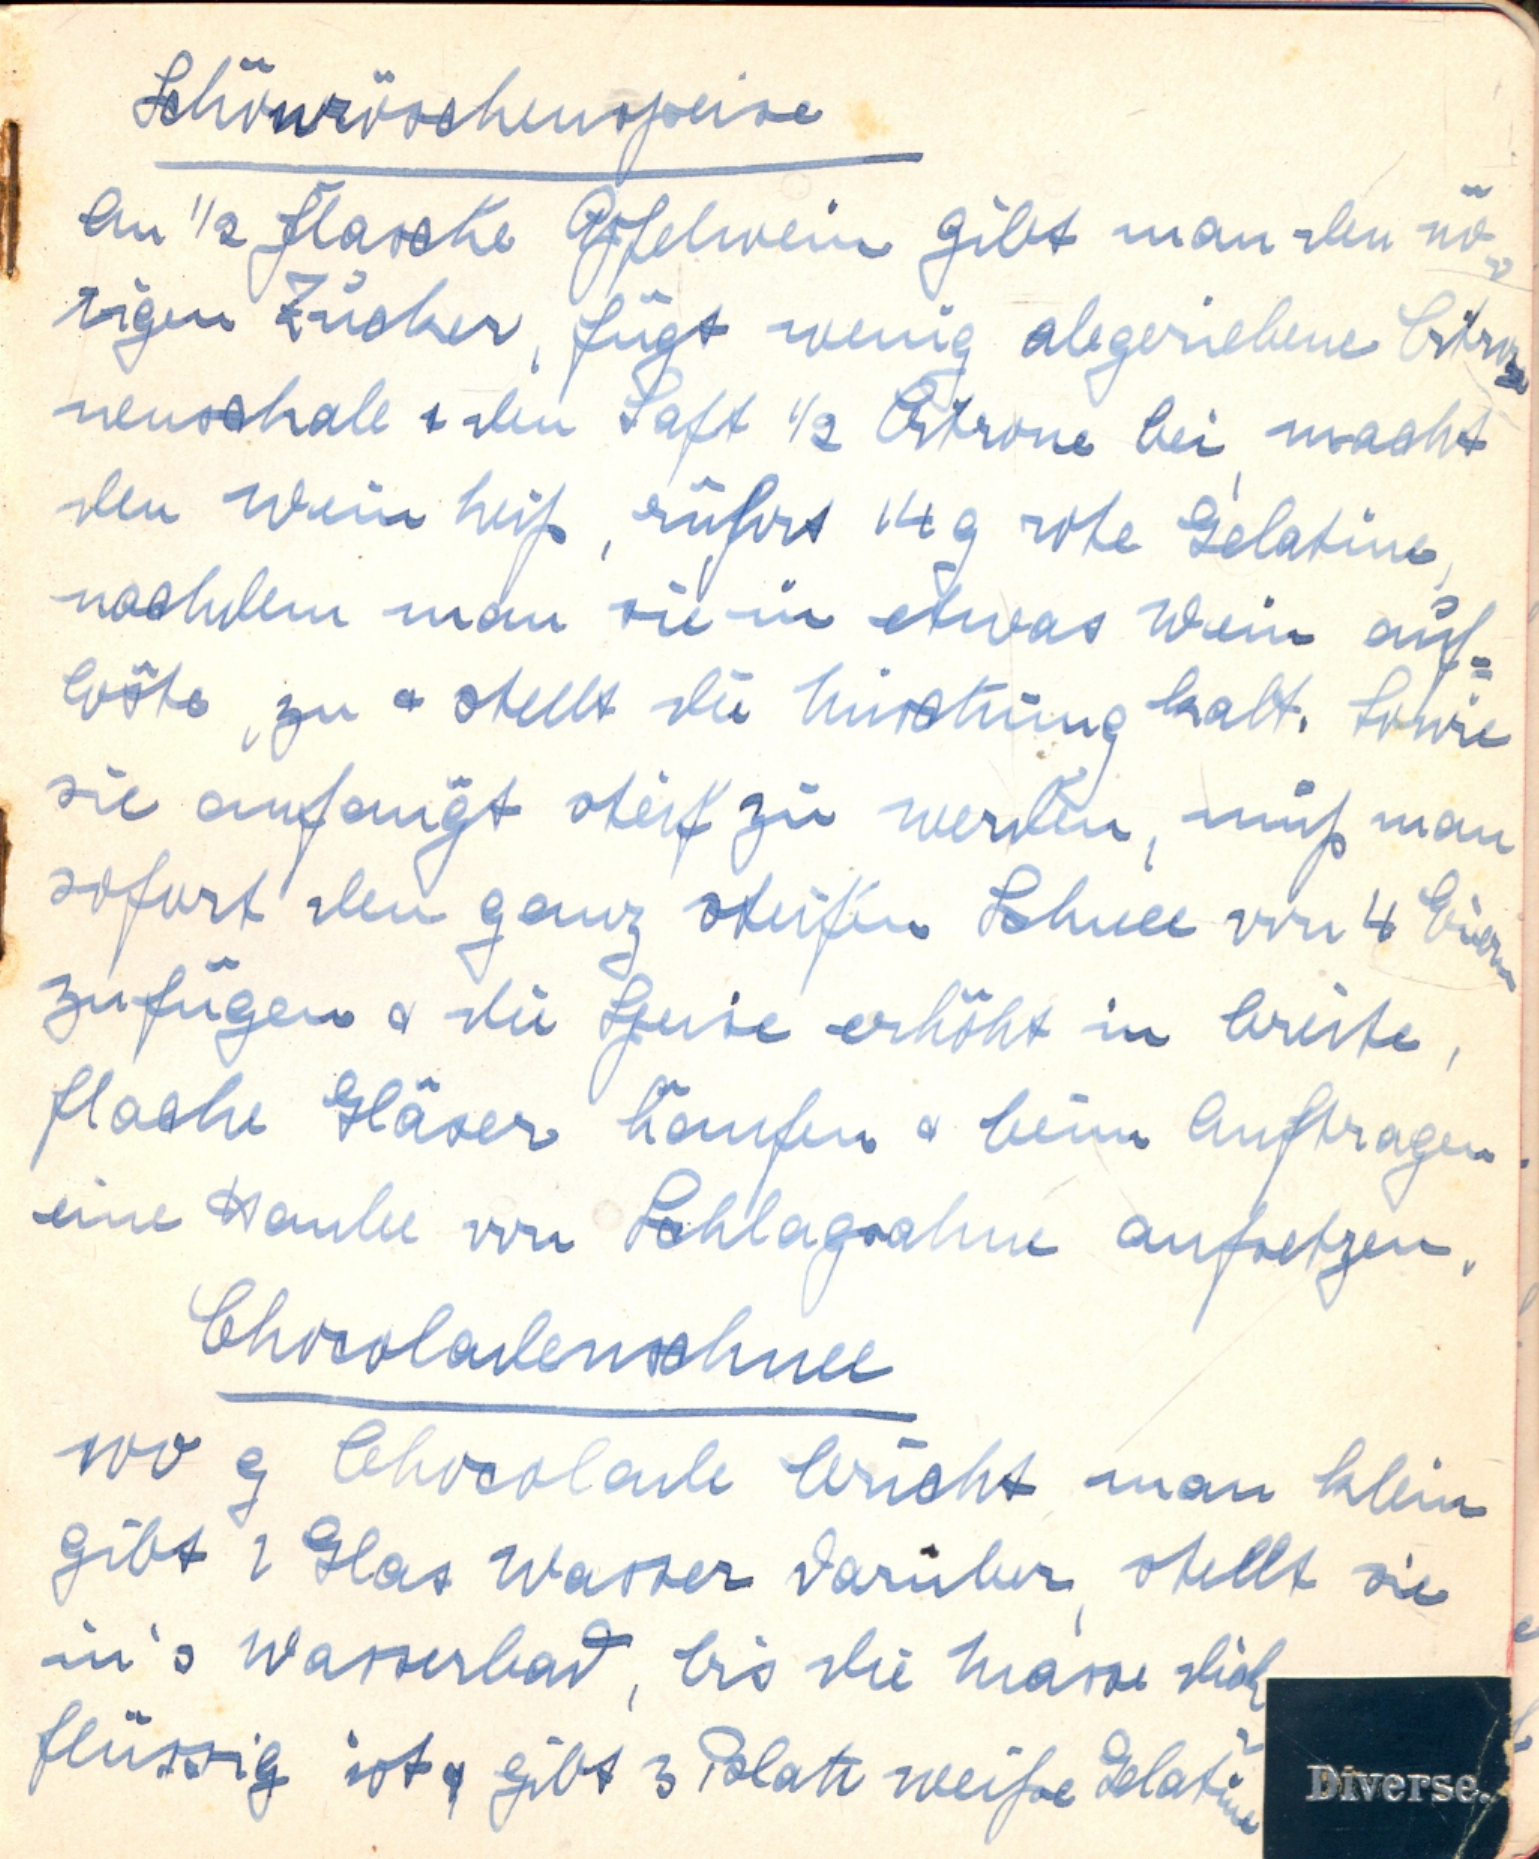 Schönröschenspeise
An 1/2 Flasche Apfelwein gibt man den nö-
tigen Zucker, fügt wenig abgeriebene Citro=
nenschale & den Saft 1/2 Citrone bei, macht
den Wein heiß, rührt 14 g rote Gelatine,
nachdem man sie in etwas Wein auf=
löste, zu & stellt die Mischung kalt. Sowie
sie anfängt steif zu werden, muß man
sofort den ganz steifen Schnee von 4 Eiern
zufügen & die Speise erhöht in breite,
flache Gläser häufen & beim Auftragen
eine Haube von Schlagsahne aufsetzen.
Chocoladenschnee
100 g Chocolade bricht man klein
gibt 1 Glas Wasser darüber, stellt sie
in's Wasserbad, bis die Masse dick
flüssig ist & gibt 3 Blatt weiße Gelatine
Diverse.